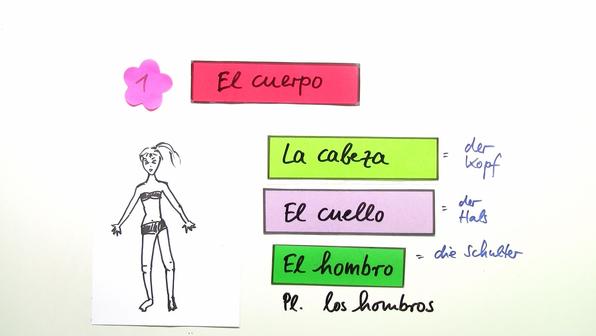 1
El cuerpo
La cabeza
= der
Kopf
El cuello
= der
Hals
El hombro
= die Schulter
Pl. los hombros